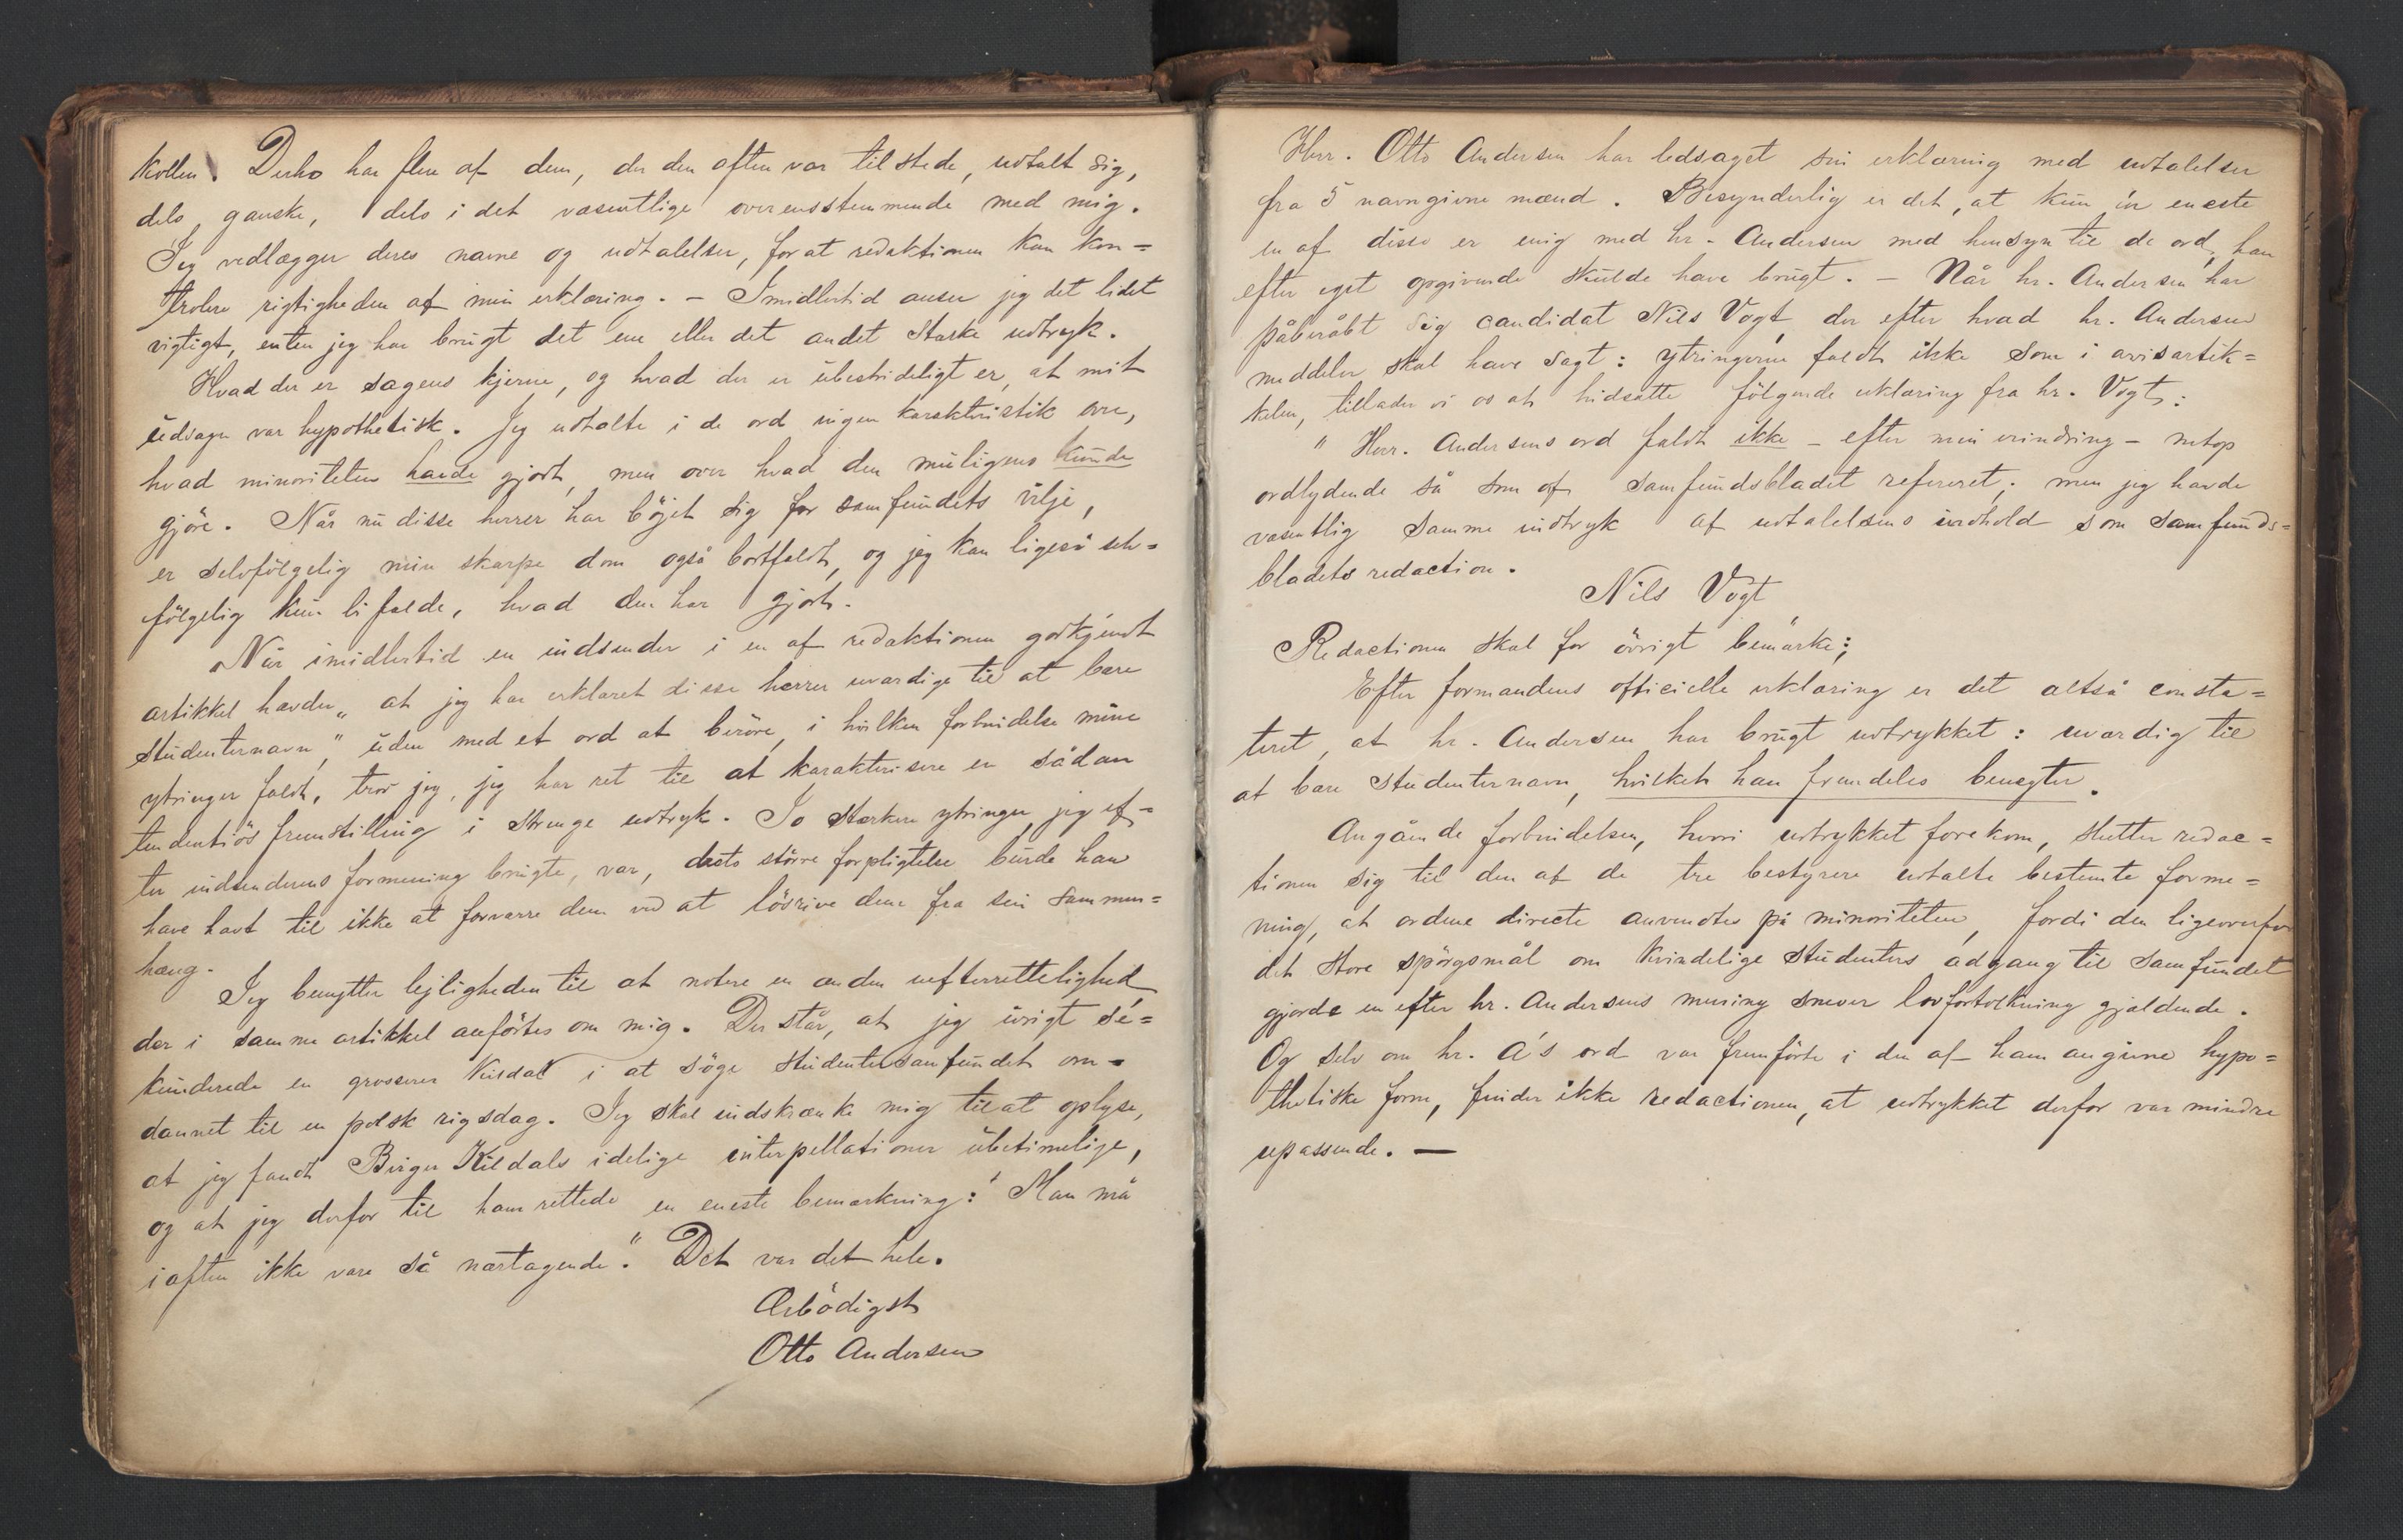 kollen. Desho har flere af dem, der den aften var tilstede, udtalt sig,
dels ganske, dels i det væsentlige overensstemmende med mig.
Jeg vedlægger deres navne og udtalelser, for at redaktionen kan kon=
trolere rigtigheden af min erklæring. – Imidlertid anser jeg det lidet
vigtigt, enten jeg har brugt det ene eller det andet stærke udtryk.
Hvad der er sagens kjerne, og hvad der er ubestrideligt er, at mit
udsagn var hypothetisk. Jeg udtalte i de ord ingen karakteristik over,
hvad minoriteten havde gjort, men over hvad den muligens kunde
gjöre. Når nu disse herrer har böjet sig for samfundets vilje,
er selvfölgelig min skarpe dom også bortfaldt, og jeg kan ligeså selv=
fölgelig kun bifalde, hvad den har gjort.
Når imidlertid en indsender i en af redaktionen godkjendt
artikkel hævder „at jeg har erklæret disse herrer uværdige til at bære
studenternavn", uden med et ord at beröre, i hvilken forbindelse mine
ytringer faldt, tror jeg, jeg har ret til at karakterisere en sådan
tendentiös fremstilling i strenge udtryk. Jo stærkere ytringer jeg ef=
ter indsenderens formening brugte, var, desto större forpligtelse burde han
have havt til ikke at forværre dem ved at lösrive dem fra sin sammen=
hæng.
Jeg benytter lejligheden til at notere en anden uefterrettelighed
der i samme artikkel anförtes om mig. Der står, at jeg ivrigt se=
kunderede en grosserer Kildal i at söge Studentersamfundet om=
dannet til en polsk rigsdag. Jeg skal indskrænke mig til at oplyse,
at jeg fandt Birger Kildals idelige interpellationer ubetimelige,
og at jeg derfor til ham rettede en eneste bemærkning: "Man må
iaften ikke være så nærtagende." Det var det hele.
Ærbödigst
Otto Andersen
Herr. Otto Andersen har ledsaget sin erklæring med udtalelser
fra 5 navngivne mænd. Besynderlig er det, at kun én eneste
en af disse er enig med hr. Andersen med hensyn til de ord, han
efter eget opgivende skulde have brugt. – Når hr. Andersen har
påberåbt sig candidat Nils Vogt, der efter hvad hr. Andersen
meddeler skal have sagt: ytringerne faldt ikke som i avisartik=
kelen, tillader vi os at hidsætte fölgende erklæring fra hr. Vogt:
"Herr. Andersens ord faldt ikke – efter min erindring – netop
ordlydende så som af Samfundsbladet refereret; men jeg havde
væsentlig samme indtryk af udtalelsens indhold som Samfunds=
bladets redaction.
Nils Vogt
Redactionen skal for övrigt bemærke:
Efter formandens officielle erklæring er det altså consta=
teret, at hr. Andersen har brugt udtrykket: uværdig til
at bære studenternavn, hvilket han fremdeles benegter.
Angående forbindelsen, hvori udtrykket forekom, slutter redac=
tionen sig til den af de tre bestyrere udtalte bestemte forme=
ning, at ordene directe anvendtes på minoriteten, fordi den ligeoverfor
det store spörgsmål om kvindelige studenters adgang til Samfundet
gjorde en efter hr. Andersens mening snever lovfortolkning gjældende.
Og selv om hr. A's ord var fremförte i den af ham angivne hypo=
thetiske form, finder ikke redactionen, at udtrykket derfor var mindre
upassende. –